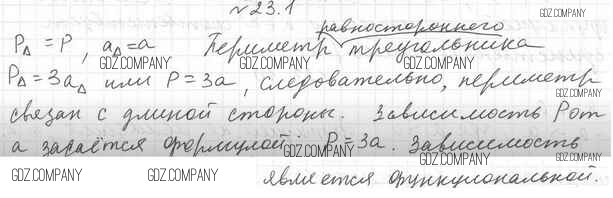 №23.1
равностороннего
P△ = P, a△=a Периметр треугольника
P△ = 3a△ или P = 3a, следовательно, периметр
связан с длиной стороны. Зависимость P от
a задаётся формулой: P = 3a. Зависимость
является функциональной.
GDZ.COMPANY
GDZ.COMPANY
GDZ.COMPANY
GDZ.COMPANY
GDZ.COMPANY
GDZ.COMPANY
GDZ.COMPANY
GDZ.COMPANY
GDZ.COMPANY
GDZ.COMPANY
GDZ.COMPANY